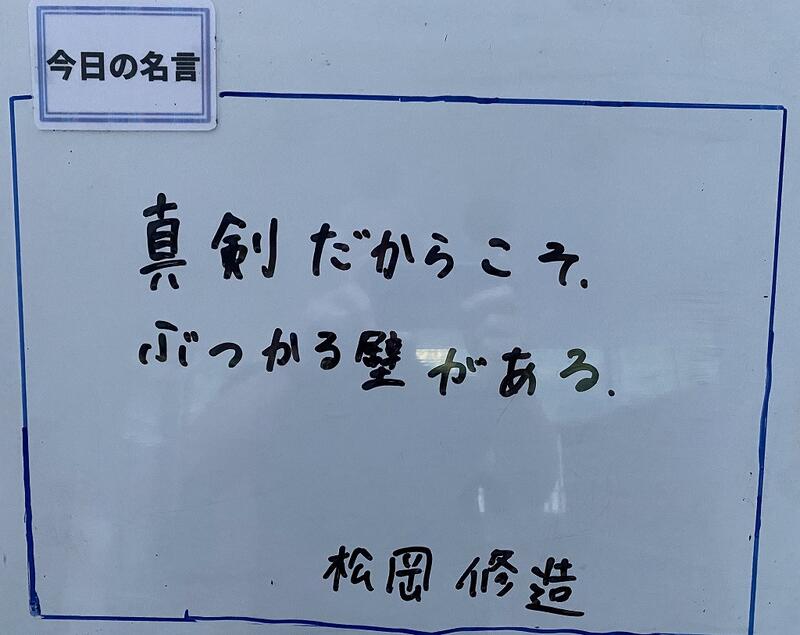 今日の名言
真剣だからこそ.
ぶつかる壁がある.
松岡 修造